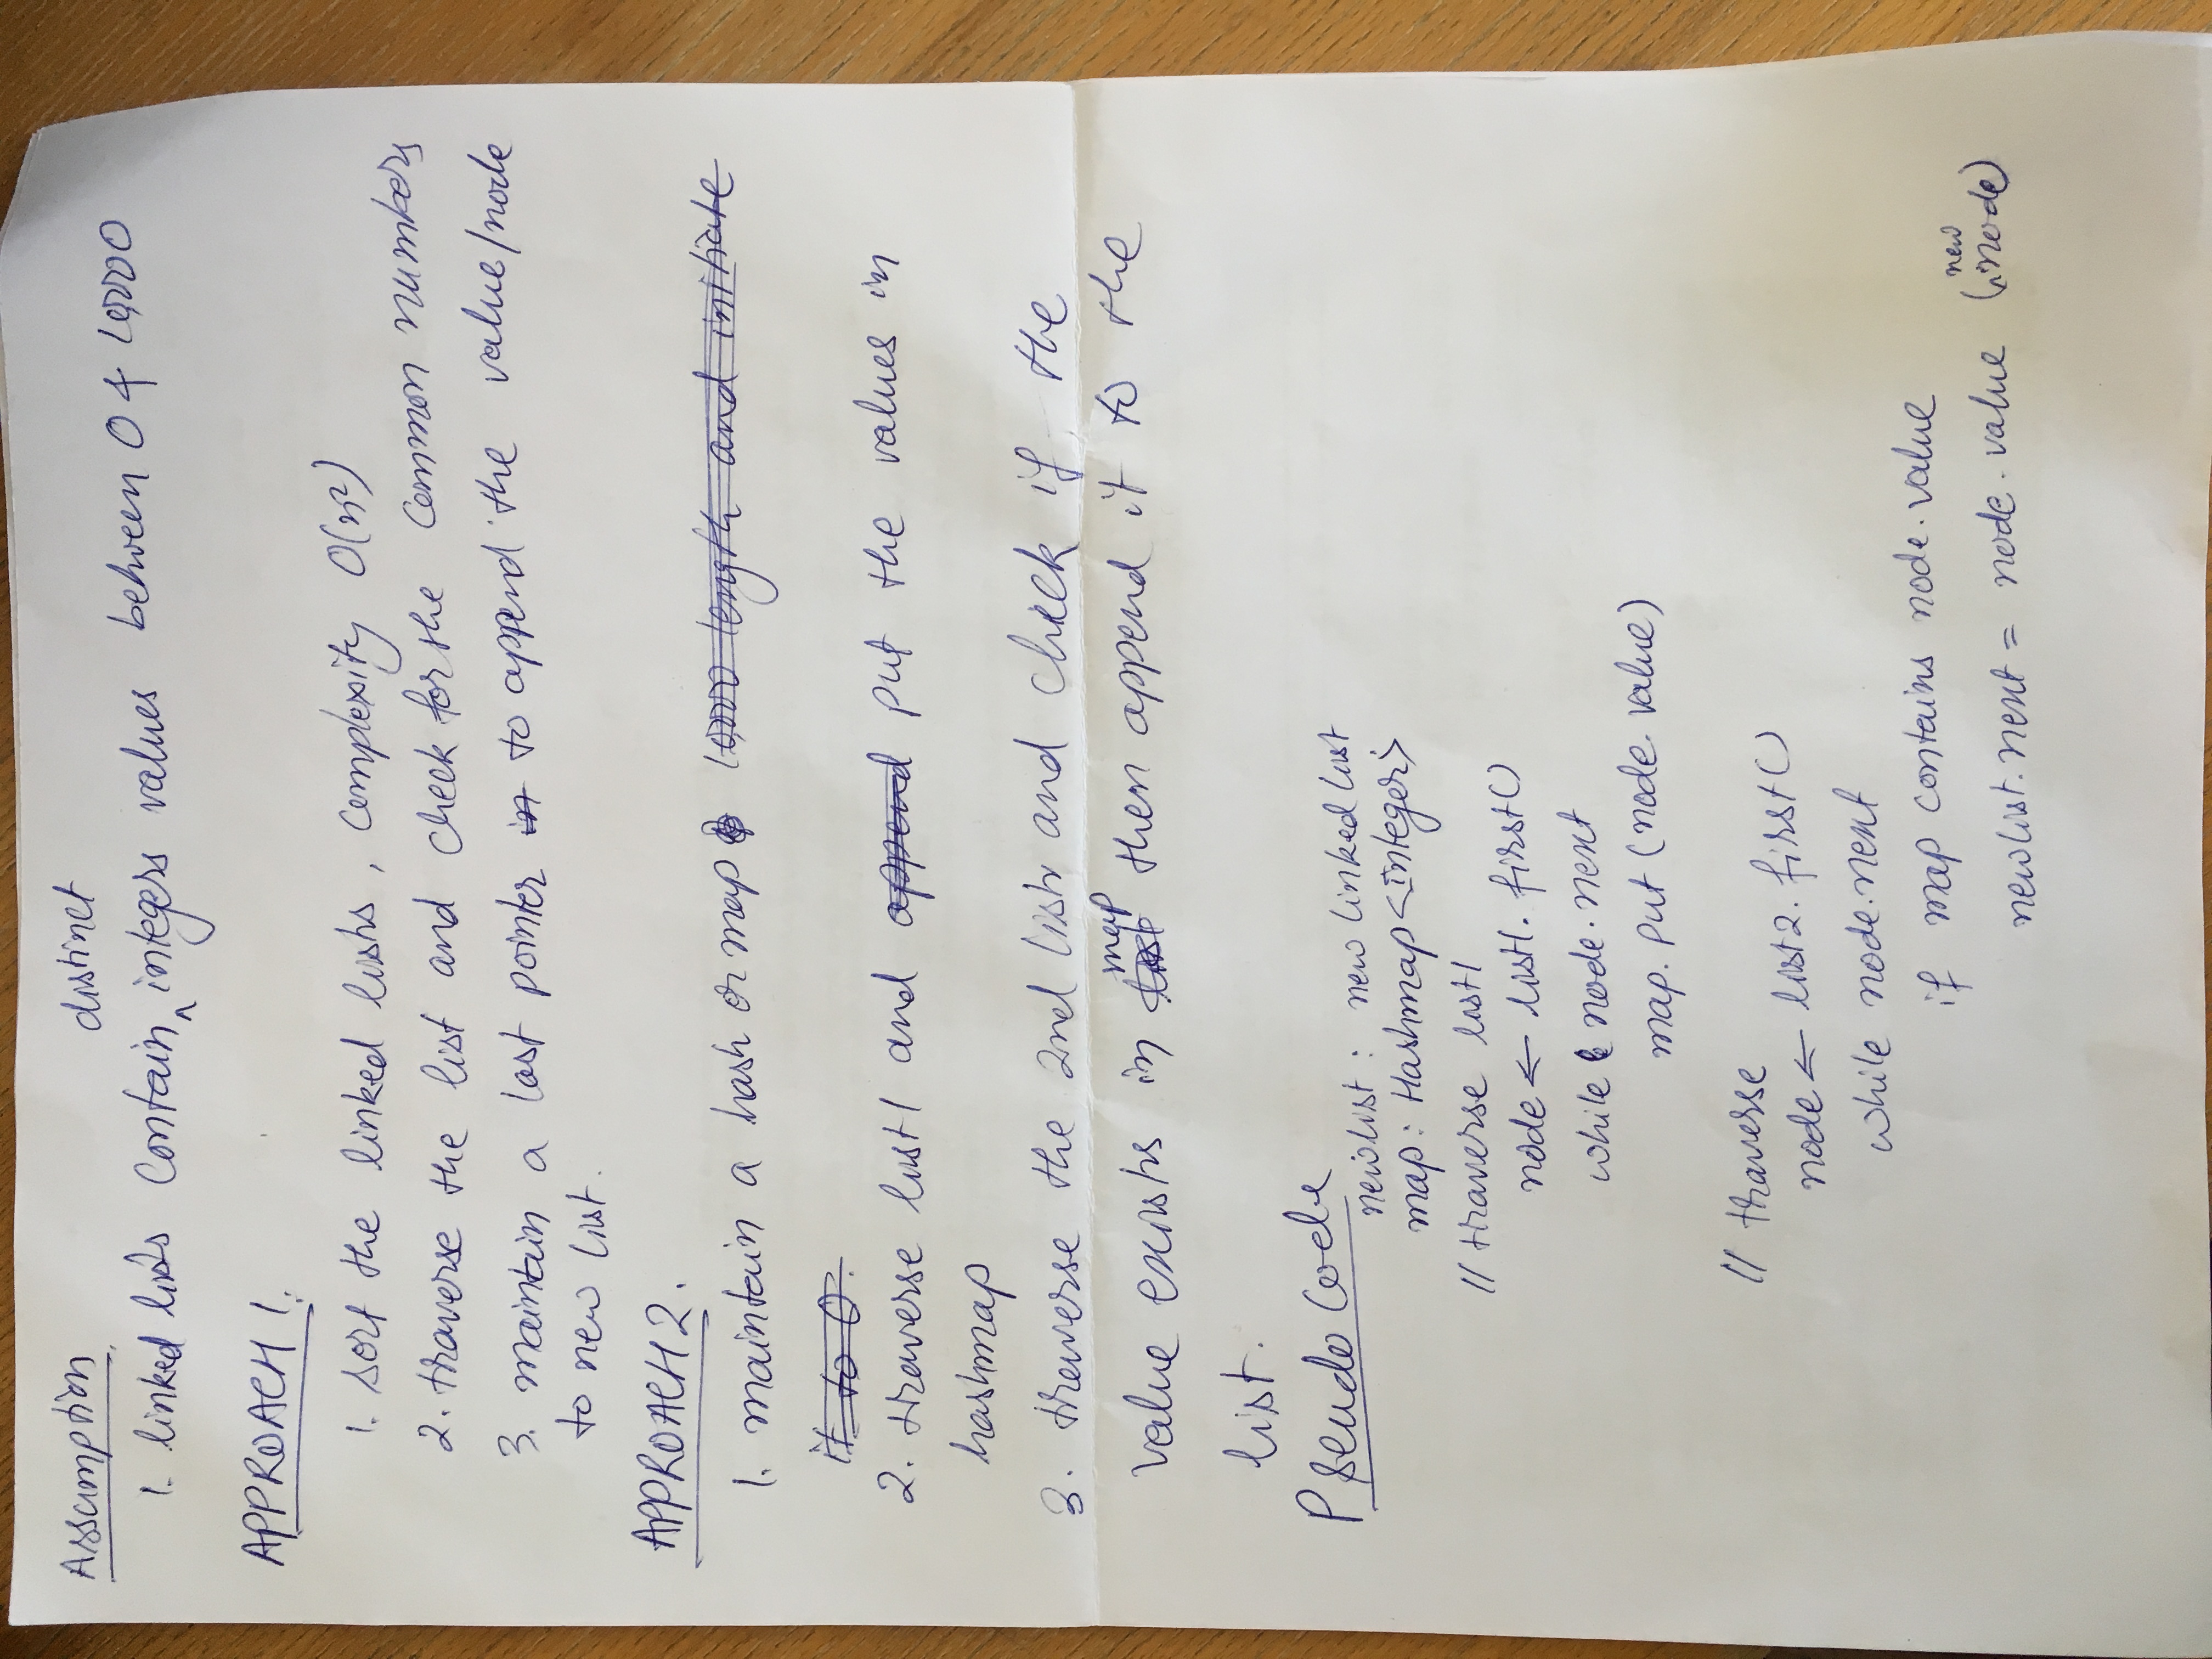 Assumption
1. linked lists contain ^ distinct integers values between 0 & 10,000
APPROACH 1.
1. sort the linked lists, complexity O(n²)
2. traverse the list and check for the common numbers
3. maintain a last pointer in to append the value/node
to new list.
APPROACH 2.
1. maintain a hash or map 10,000 length and initiate
it to 0.
2. traverse list1 and append put the values in
hashmap
3. traverse the 2nd list and check if the
value exists in list map then append it to the
list.
Pseudo Code
newlist : new linked list
map : Hashmap<integer>
// traverse list1
node ← list1. first()
while node.next
map. put (node. value)
// traverse
node ← list2. first()
while node.next
if map contains node.value
newlist.next = node.value (new node)